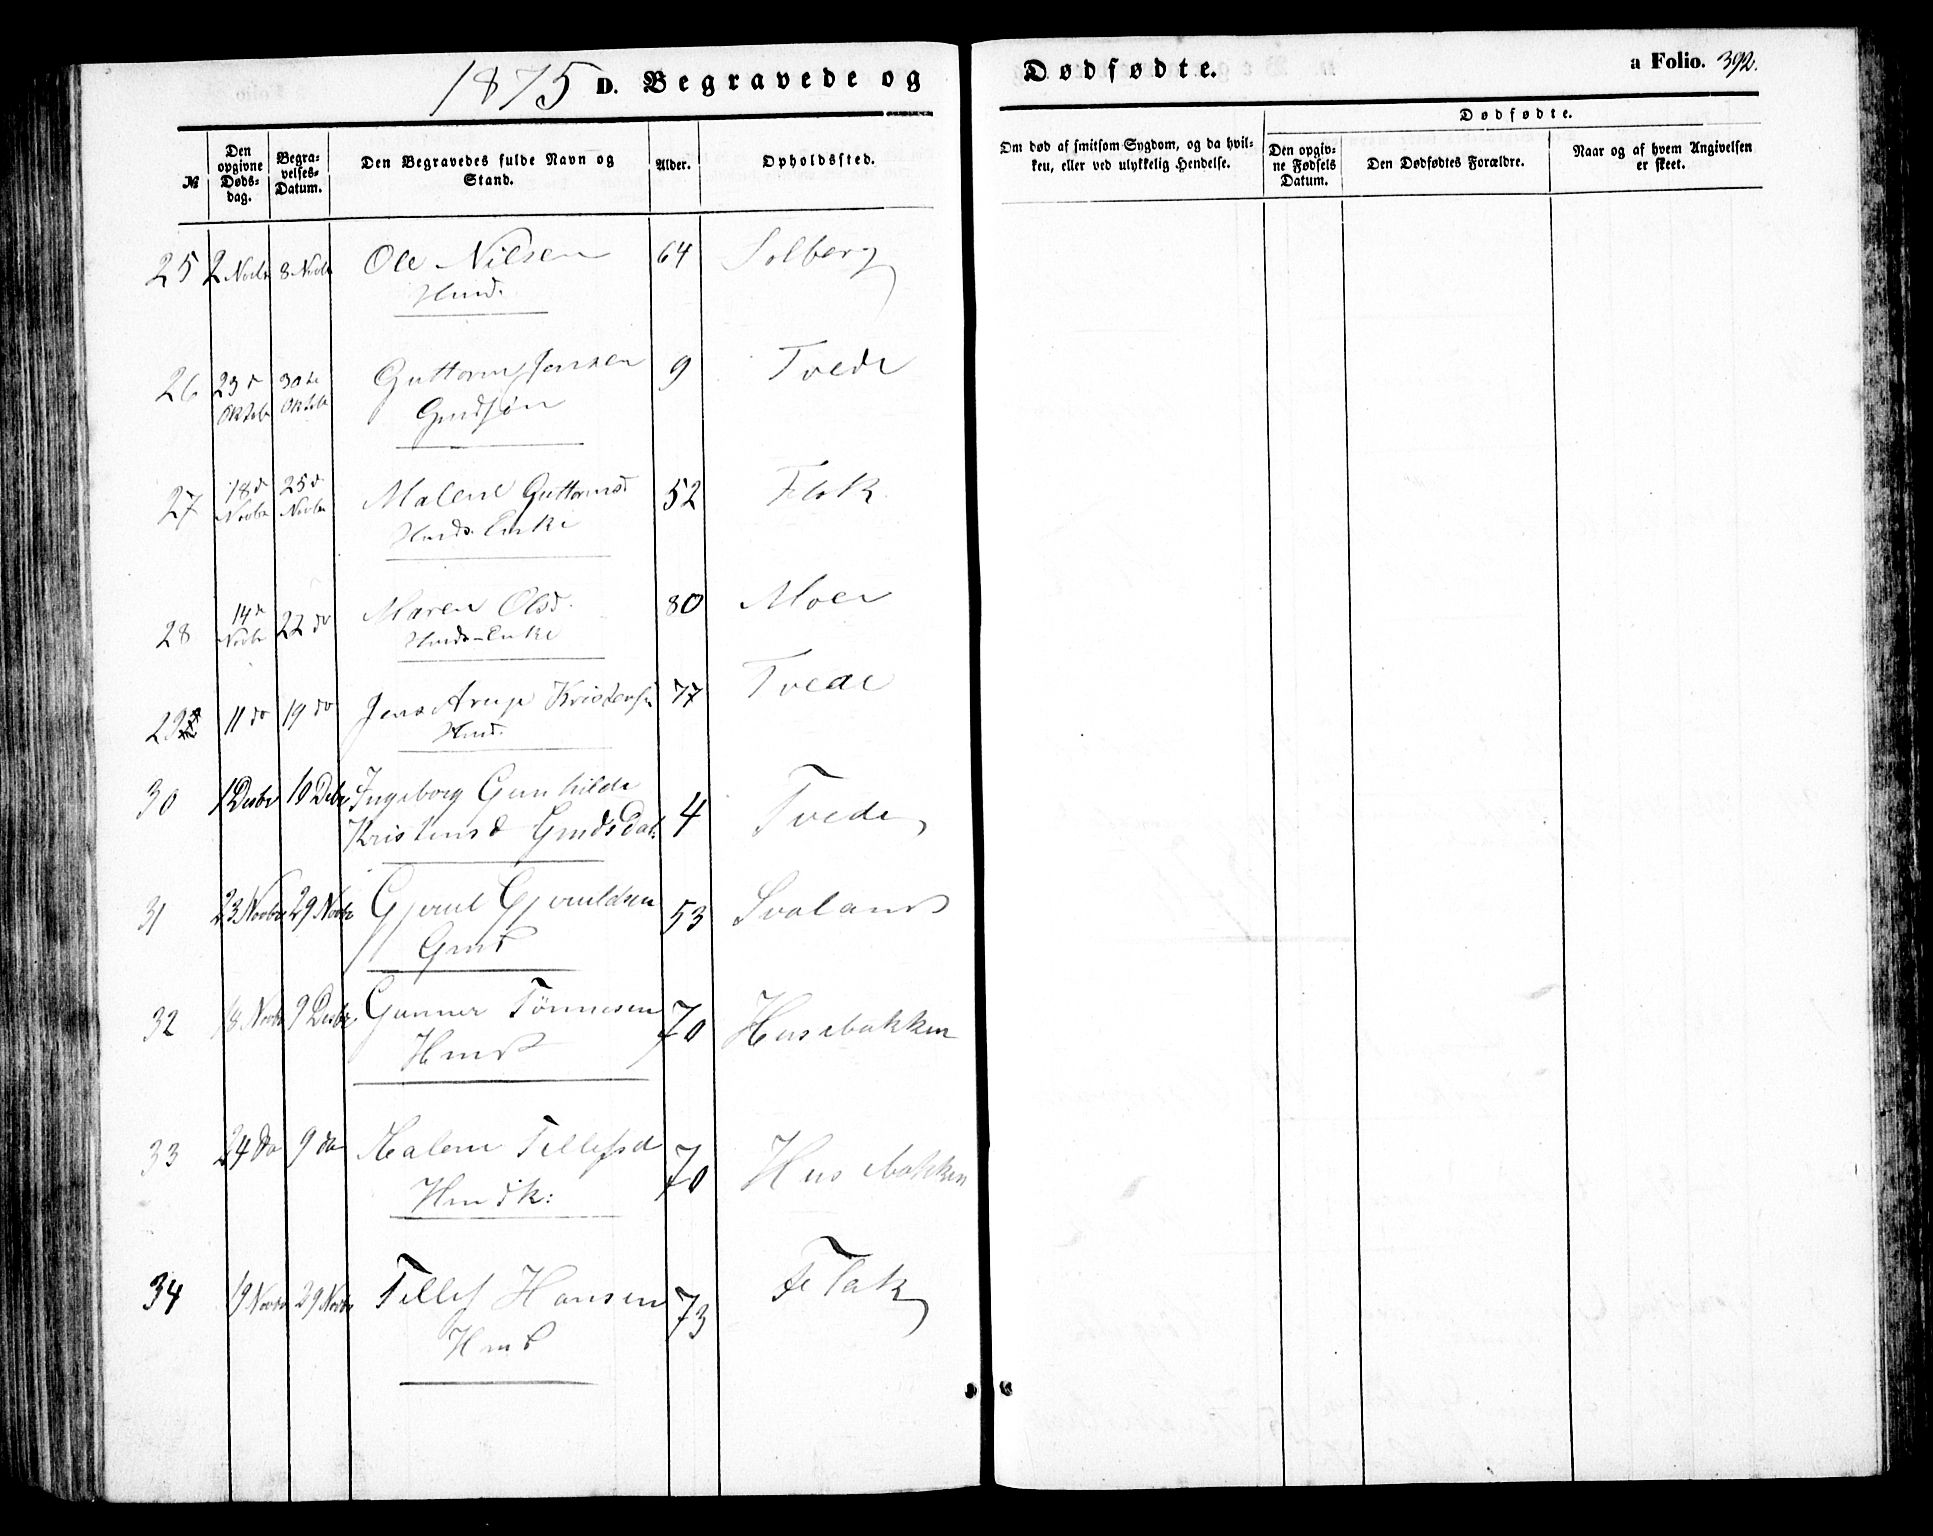 1875 D. Begravede og
Dødfødte.
a Folio. 392.
№
Den opgivne Døds-dag.
Begra-velses-Datum.
Den Begravedes fulde Navn og Stand.
Alder.
Opholdssted.
Om død af smitsom Sygdom, og da hvil-ken, eller ved ulykkelig Hendelse.
Dødfødte.
Den opgiv-ne Fødsels Datum.
Den Dødfødtes Forældre.
Naar og af hvem Angivelsen er skeet.
25 2 Novbr 8 Novbr Ole Nilsen 64 Solberg
Hmd.
26 23d Oktobr 30te Oktobr Guttorm Jensen 9 Tvede
Gmdsøn
27 18d Novbr 25d Novbr Malene Guttormsd 52 Flak
Hmds. Enke
28 14d Novbr 22 do Maren Olsd. 80 Moen
Hmds-Enke
29 11 do 19 do Jens Aarup Kristensen 77 Tvede
Hmd.
30 1 Desbr 10 Debr Ingeborg Gunhilde
Kristensd Gmdsdat: 4 Tvede
31 23 Novbr 29 Novbr Gjeruld Gjeruldsen 53 Svaland
Gmd
32 18 Novbr 9 Desbr Gunner Tønnesen 70 Husebakken
Hmd
33 24 do 9 do Malene Tellefsd 70 Husebakken
Hmdk:
34 19 Novbr 29 Novbr Tellef Hansen 73 Flak
Hmd